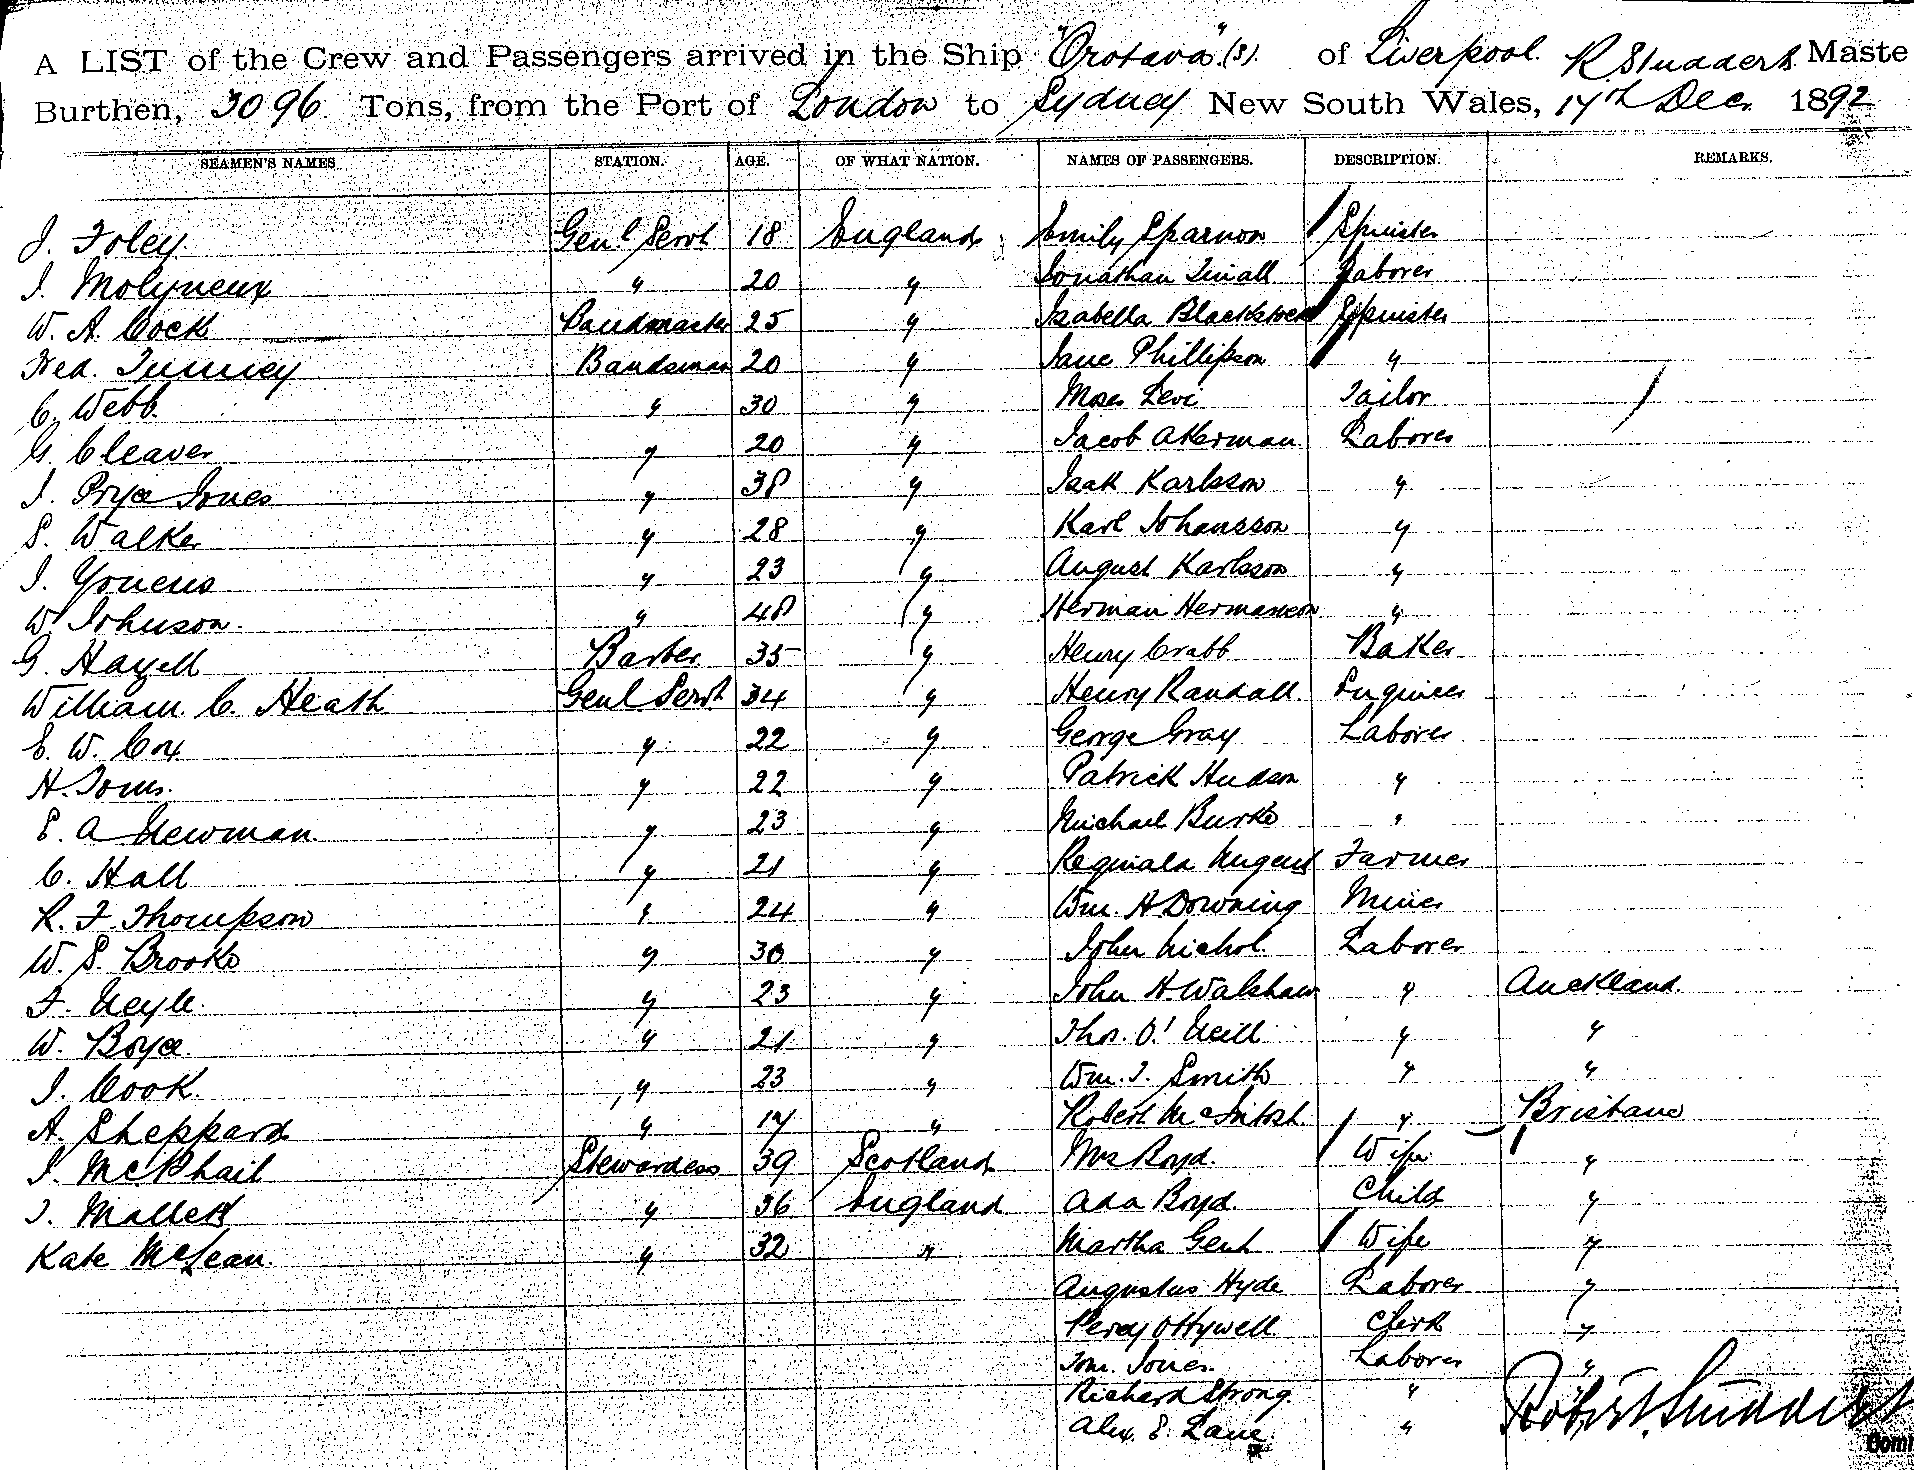 A LIST of the Crew and Passengers arrived in the Ship "Orotava" (S). of Liverpool. R Studdert. Maste
Burthen, 3096 Tons, from the Port of London to Sydney New South Wales, 17th Dec. 1892
SEAMEN'S NAMES STATION. AGE. OF WHAT NATION. NAMES OF PASSENGERS. DESCRIPTION. REMARKS.
J. Foley. Genl Servt 18 England Emily Sparnon Spinster
J. Molyneux " 20 " Jonathan Small Laborer
W. A. Cock Bandmaster 25 " Isabella Spinster
Fred. Tunney Bandsman 20 " Jane Phillipson "
C. Webb. " 30 " Moses Levi Tailor
G. Cleaver " 20 " Jacob Akerman Laborer
J. Pryce Jones " 38 " Isak Karlsson "
S. Walker " 28 " Karl Johansson "
J. Youens " 23 " August Karlsson "
W. Johnson. " 48 " Herman Hermanson "
G. Hazell Barber 35 " Henry Crabb Baker
William C. Heath Genl Servt 34 " Henry Randall Engineer
E. W. Cox " 22 " George Gray Laborer
H. Toms. " 22 " Patrick Hudson "
E. A Newman. " 23 " Michael Burke "
C. Hall " 21 " Reginald Nugent Farmer
R. F. Thompson " 24 " Wm. H Downing Miner
W. S. Brooks " 30 " John Nichol. Laborer
F. Neyle. " 23 " John H. Walshaw " Auckland
W. Boyce. " 21 " Thos. O'Neill " "
J. Cook. " 23 " Wm. J. Smith " "
A. Sheppard " 17 " Robert McIntosh. " Brisbane
J. McPhail Stewardess 39 Scotland Mrs Boyd. Wife "
J. Mallett " 36 England Ada Boyd. Child "
Kate McLean. " 32 " Martha Gent Wife "
Augustus Hyde Laborer "
Percy Ottywell Clerk "
Tom. Jones. Laborer "
Richard Strong. "
Alex. E. Lane "
Robert Studdert